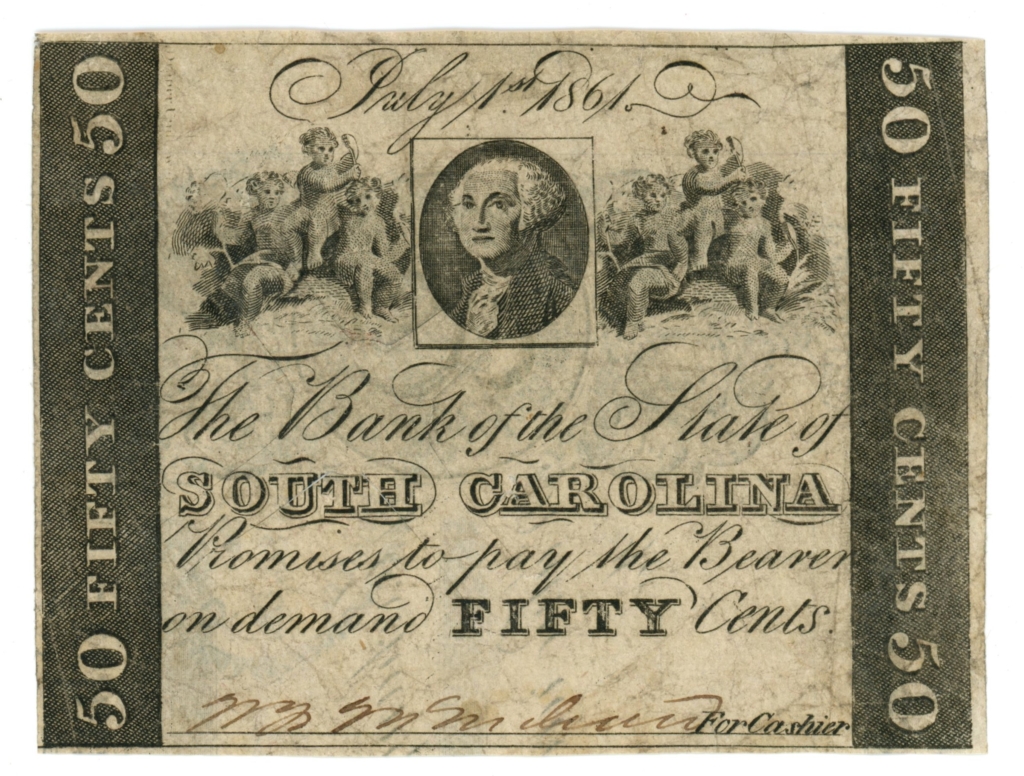 July 1st. 1861.
50 FIFTY CENTS 50
50 FIFTY CENTS 50
The Bank of the State of
SOUTH CAROLINA
Promises to pay the Bearer
on demand FIFTY Cents.
For Cashier